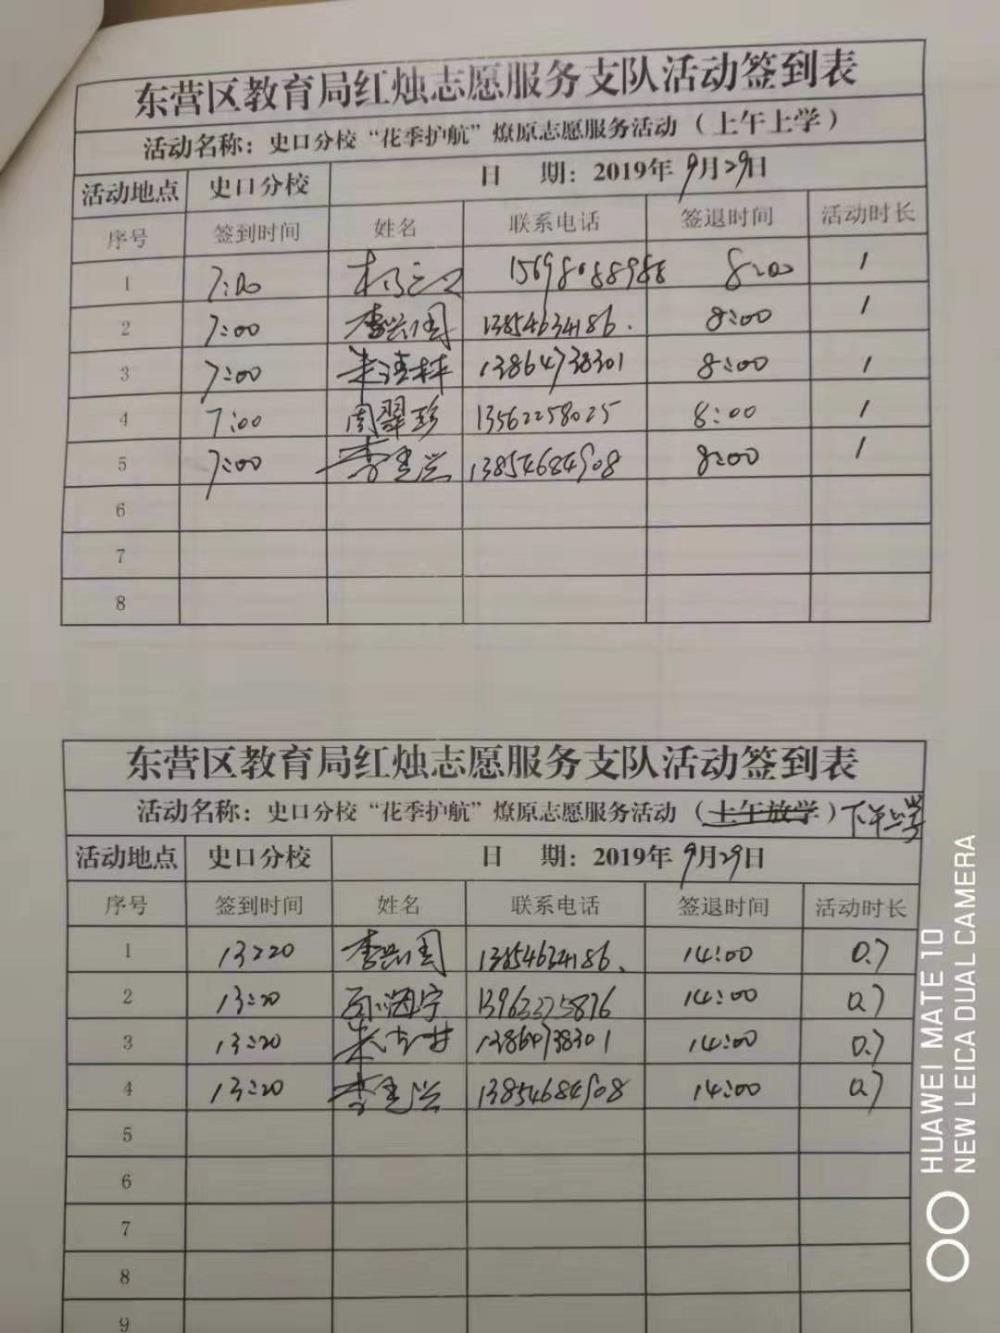 东营区教育局红烛志愿服务支队活动签到表
活动名称：史口分校“花季护航”燎原志愿服务活动（上午上学）
活动地点 史口分校 日 期：2019年 9月29日
序号 签到时间 姓名 联系电话 签退时间 活动时长
1 7:00 15698088988 8:00 1
2 7:00 李兴国 13854634186. 8:00 1
3 7:00 13864738301 8:00 1
4 7:00 周翠彭 13562258025 8:00 1
5 7:00 13854684908 8:00 1
6
7
8
东营区教育局红烛志愿服务支队活动签到表
活动名称：史口分校“花季护航”燎原志愿服务活动（上午放学）下午上学
活动地点 史口分校 日 期：2019年 9月29日
序号 签到时间 姓名 联系电话 签退时间 活动时长
1 13:20 李兴国 13854634186、 14:00 0.7
2 13:20 13963325876 14:00 0.7
3 13:20 14:00 0.7
4 13:20 13854684908 14:00 0.7
5
6
7
8
9
HUAWEI MATE 10
NEW LEICA DUAL CAMERA